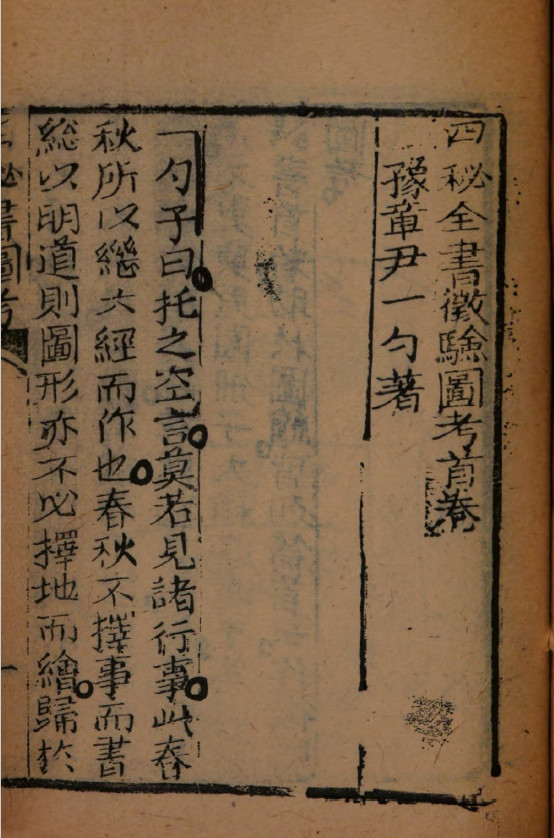 四秘全書徵驗圖考首卷
豫章尹一勺著
一勺子曰托之空言莫若見諸行事此春
秋所以繼六經而作也春秋不擇事而書
總以明道則圖形亦不必擇地而繪歸於
書圖考
一